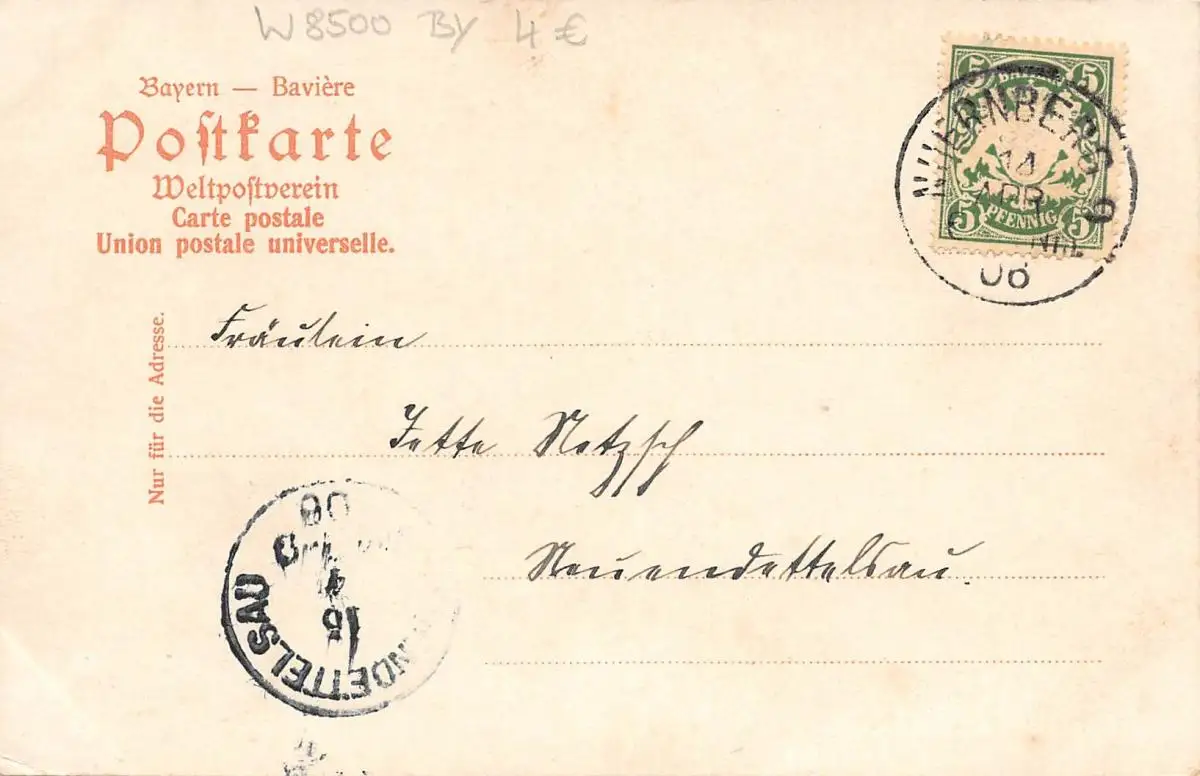 W 8500 BY 4 €
Bayern — Bavière
Postkarte
Weltpostverein
Carte postale
Union postale universelle.
5 5
BAYERN
5 PFENNIG 5
NUERNBERG 9
14
APR
NM.
06
Nur für die Adresse.
Fräulein
Jette Netzsch
Neuendettelsau.
NDETTELSAU
15
4
06